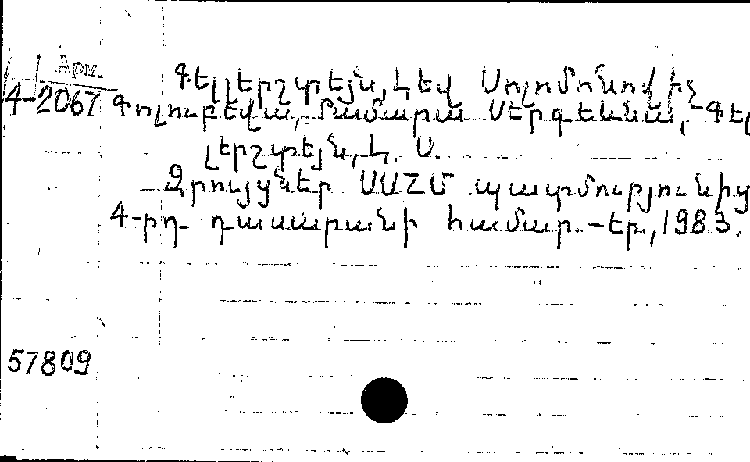 Արմ.
4-2067
Գելլերշտեյն, Լեվ Սոլոմոնովիչ
Գոլուբեվա, Թամարա Սերգեևնա, Գել
լերշտեյն, Լ. Ս.
Զրույցներ ՍՍՀՄ պատմությունից
4-րդ դասարանի համար.-Եր., 1983.
57809